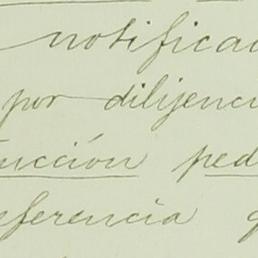 notificac
por dilijenci
ucción ped
eferencia q